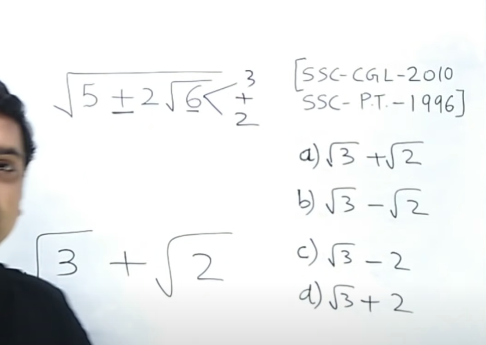 √5 ± 2√6 < 3 + 2
[SSC-CGL-2010
SSC- P.T.-1996]
a) √3 + √2
b) √3 - √2
c) √3 - 2
d) √3 + 2
√3 + √2